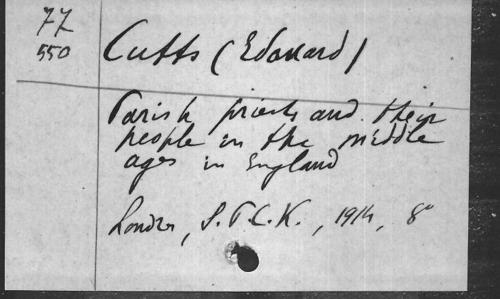 77
550
Cutts (Edouard)
Parish priests and their
people in the middle
ages in England
Londres, S.P.C.K., 1914, 8°